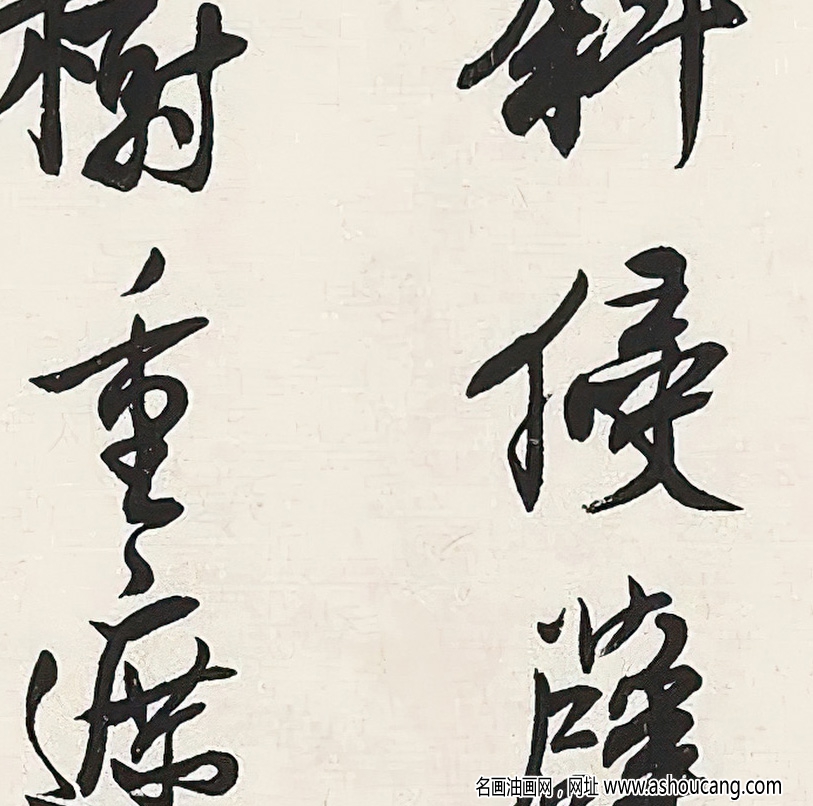 斜侵薜
樹重遮
名画油画网，网址 www.ashoucang.com